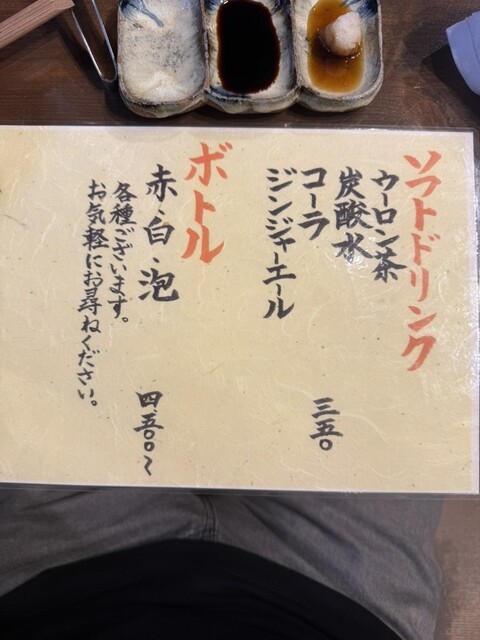 ソフトドリンク
ウーロン茶
炭酸水
コーラ
ジンジャーエール
三五〇
ボトル
赤・白・泡
四、五〇〇〜
各種ございます。
お気軽にお尋ねください。